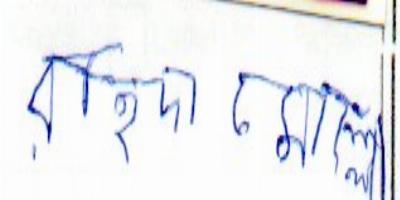 রহিদা মোল্লা